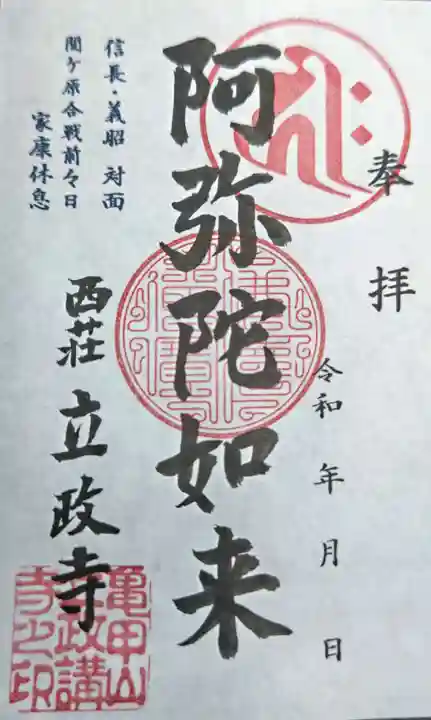 奉拝
令和 年 月 日
阿弥陀如来
信長・義昭 対面
関ヶ原合戦前々日
家康休息
西荘 立政寺
亀甲山
立政講
寺之印